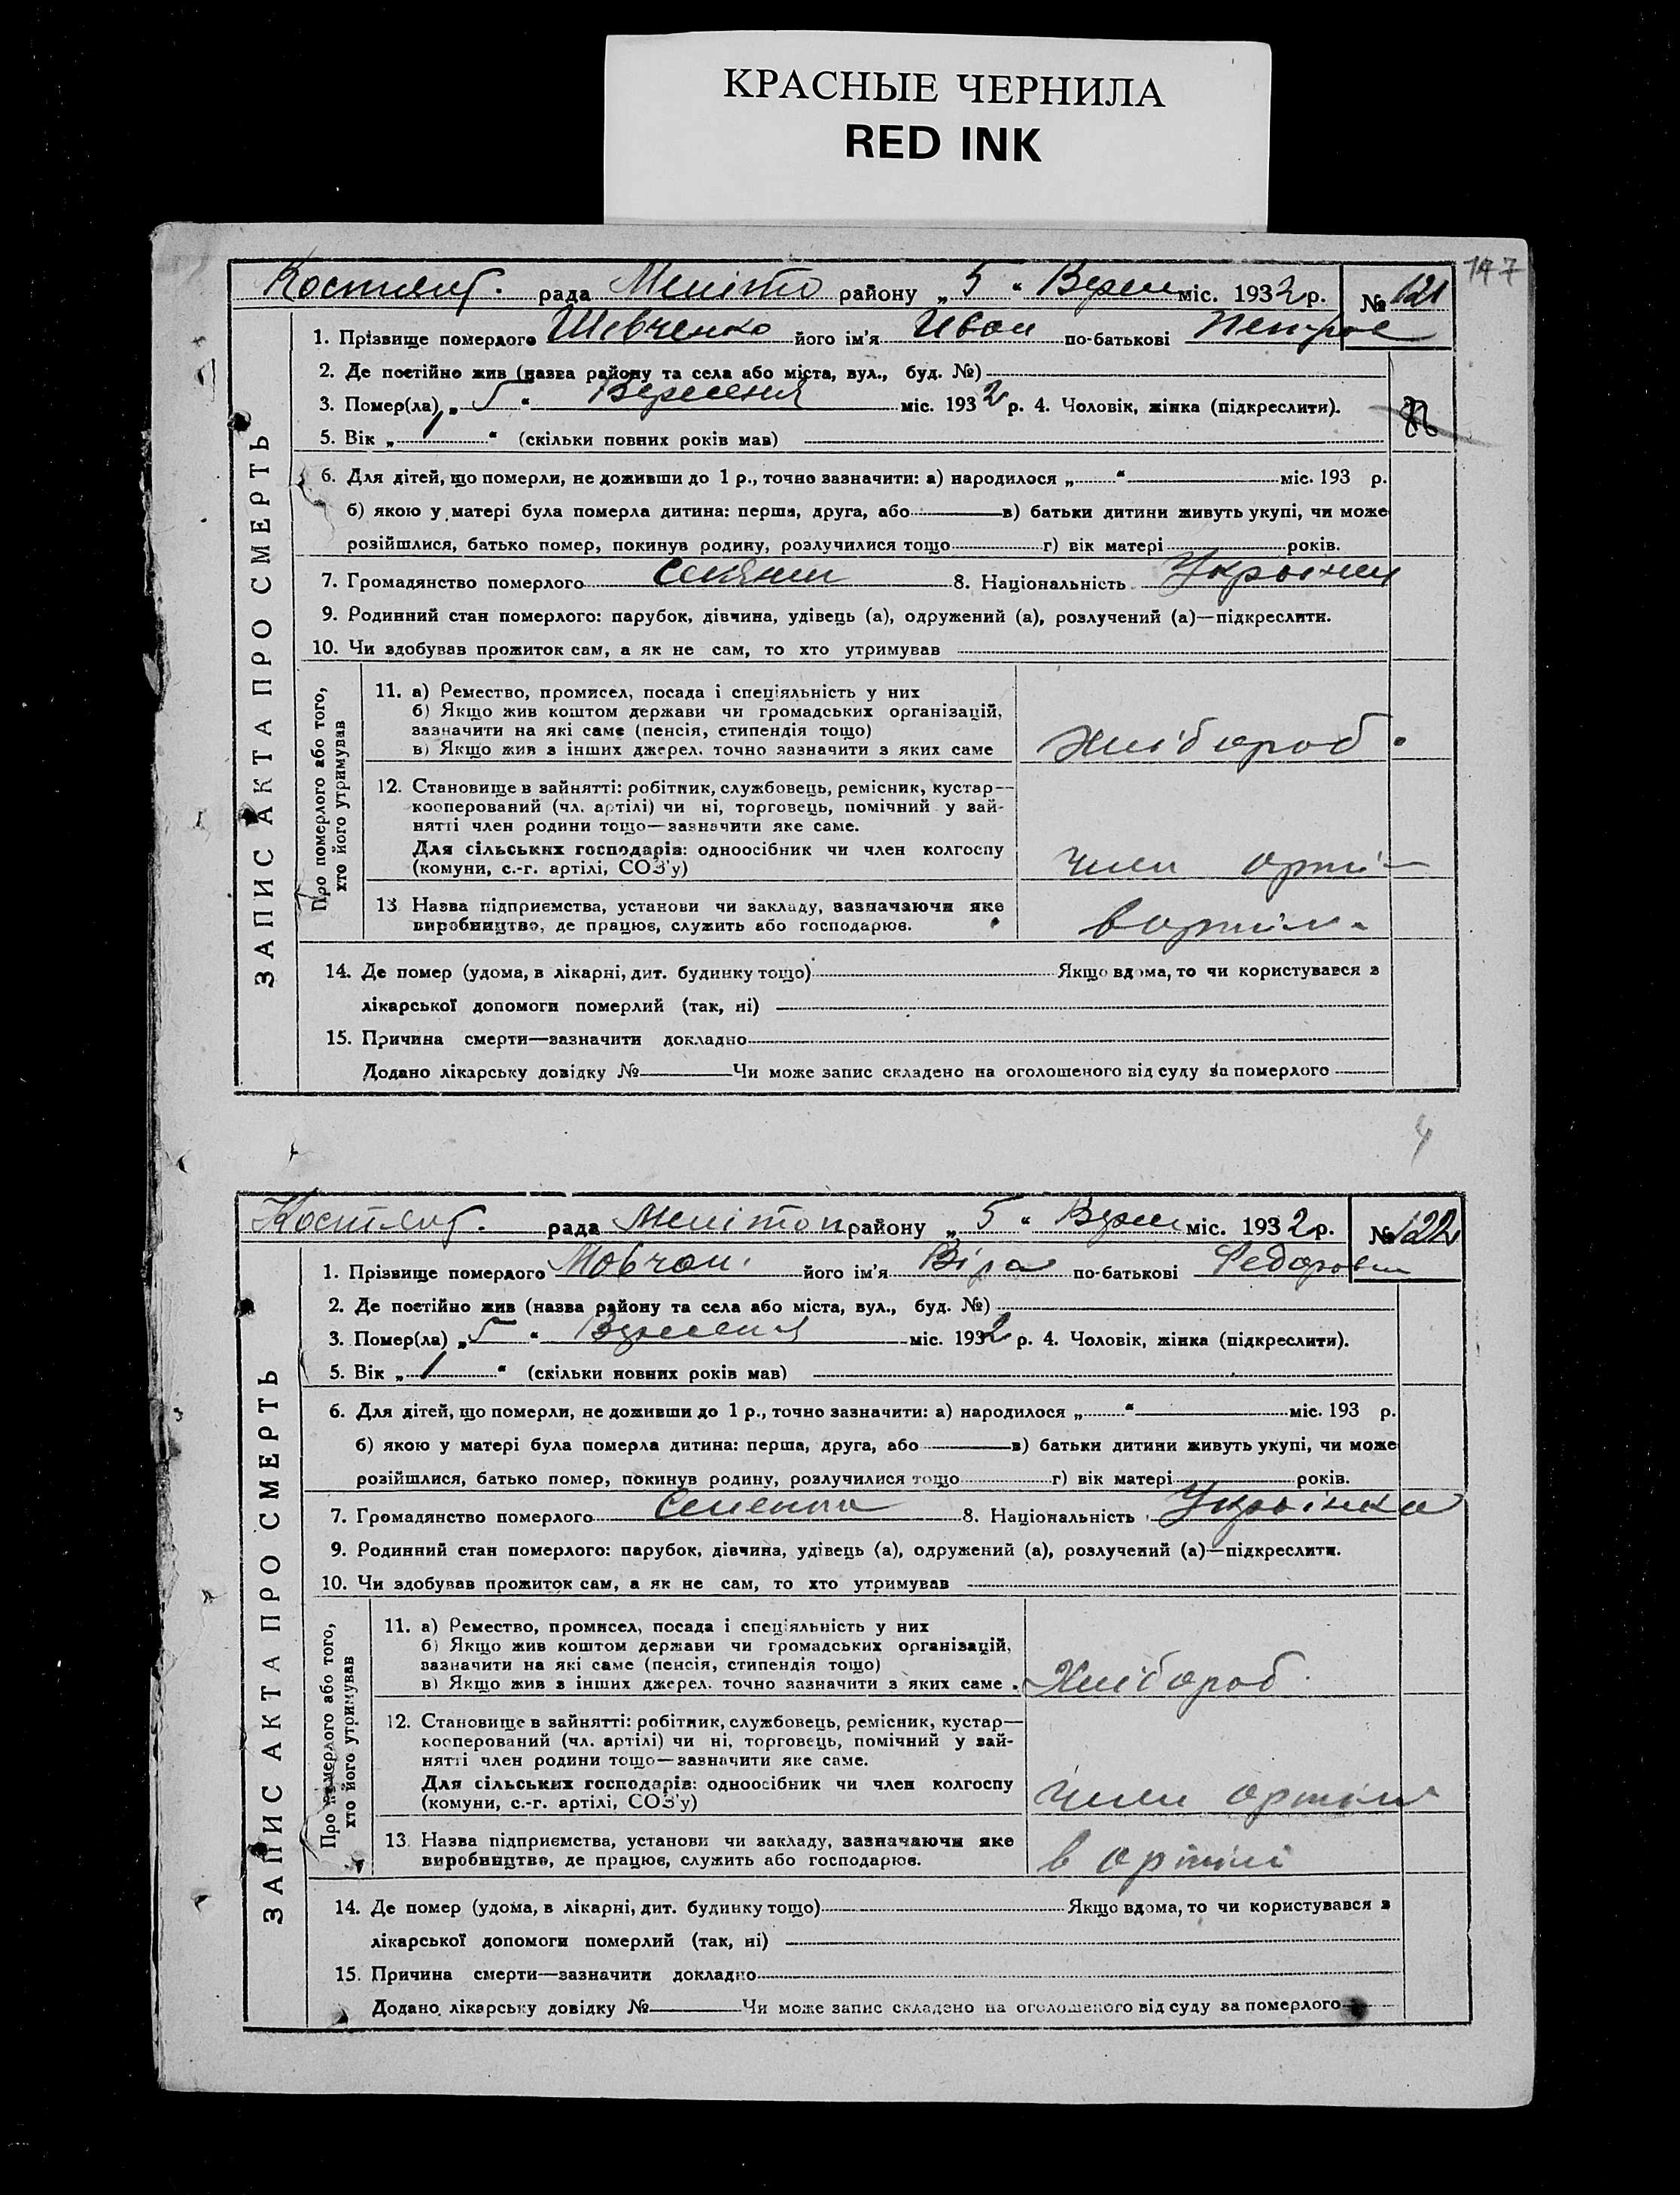 КРАСНЫЕ ЧЕРНИЛА
RED INK
147
Костянт. рада Меліто району „ 5 “ Верес міс. 1932 р. № 121
1. Прізвище померлого Шевченко його ім'я Иван по-батькові Петров
2. Де постійно жив (назва району та села або міста, вул., буд. №)
3. Помер(ла) „ 5 “ Вересеня міс. 1932 р. 4. Чоловік, жінка (підкреслити).
5. Вік „ 1 “ (скільки повних років мав)
6. Для дітей, що померли, не доживши до 1 р., точно зазначити: а) народилося „ “ міс. 193 р.
б) якою у матері була померла дитина: перша, друга, або в) батьки дитини живуть укупі, чи може
розійшлися, батько помер, покинув родину, розлучилися тощо г) вік матері років.
7. Громадянство померлого 8. Національність Украінец
9. Родинний стан померлого: парубок, дівчина, удівець (а), одружений (а), розлучений (а)—підкреслити.
10. Чи здобував прожиток сам, а як не сам, то хто утримував
ЗАПИС АКТА ПРО СМЕРТЬ
Про померлого або того,
хто його утримував
11. а) Ремество, промисел, посада і спеціяльність у них
б) Якщо жив коштом держави чи громадських організацій,
зазначити на які саме (пенсія, стипендія тощо)
в) Якщо жив з інших джерел. точно зазначити з яких саме
Хлібороб
12. Становище в зайнятті: робітник, службовець, ремісник, кустар—
кооперований (чл. артілі) чи ні, торговець, помічний у зай-
нятті член родини тощо—зазначити яке саме.
Для сільських господарів: одноосібник чи член колгоспу
(комуни, с.-г. артілі, СОЗ'у)
член арті
13. Назва підприємства, установи чи закладу, зазначаючи яке
виробництво, де працює, служить або господарює.
в артіл
14. Де помер (удома, в лікарні, дит. будинку тощо) Якщо вдома, то чи користувався з
лікарської допомоги померлий (так, ні)
15. Причина смерти—зазначити докладно
Додано лікарську довідку № Чи може запис складено на оголошеного від суду за померлого
4
Костянт. рада Мелітоп району „ 5 “ Верес міс. 1932 р. № 122
1. Прізвище померлого Мовчан його ім'я Віра по-батькові Федоровн
2. Де постійно жив (назва району та села або міста, вул., буд. №)
3. Помер(ла) „ 5 “ Вересеня міс. 1932 р. 4. Чоловік, жінка (підкреслити).
5. Вік „ 1 “ (скільки повних років мав)
6. Для дітей, що померли, не доживши до 1 р., точно зазначити: а) народилося „ “ міс. 193 р.
б) якою у матері була померла дитина: перша, друга, або в) батьки дитини живуть укупі, чи може
розійшлися, батько помер, покинув родину, розлучилися тощо г) вік матері років.
7. Громадянство померлого 8. Національність Украінка
9. Родинний стан померлого: парубок, дівчина, удівець (а), одружений (а), розлучений (а)—підкреслити.
10. Чи здобував прожиток сам, а як не сам, то хто утримував
ЗАПИС АКТА ПРО СМЕРТЬ
Про померлого або того,
хто його утримував
11. а) Ремество, промисел, посада і спеціяльність у них
б) Якщо жив коштом держави чи громадських організацій,
зазначити на які саме (пенсія, стипендія тощо)
в) Якщо жив з інших джерел. точно зазначити з яких саме
Хлібороб
12. Становище в зайнятті: робітник, службовець, ремісник, кустар—
кооперований (чл. артілі) чи ні, торговець, помічний у зай-
нятті член родини тощо—зазначити яке саме.
Для сільських господарів: одноосібник чи член колгоспу
(комуни, с.-г. артілі, СОЗ'у)
член артіли
13. Назва підприємства, установи чи закладу, зазначаючи яке
виробництво, де працює, служить або господарює.
в артілі
14. Де помер (удома, в лікарні, дит. будинку тощо) Якщо вдома, то чи користувався з
лікарської допомоги померлий (так, ні)
15. Причина смерти—зазначити докладно
Додано лікарську довідку № Чи може запис складено на оголошеного від суду за померлого